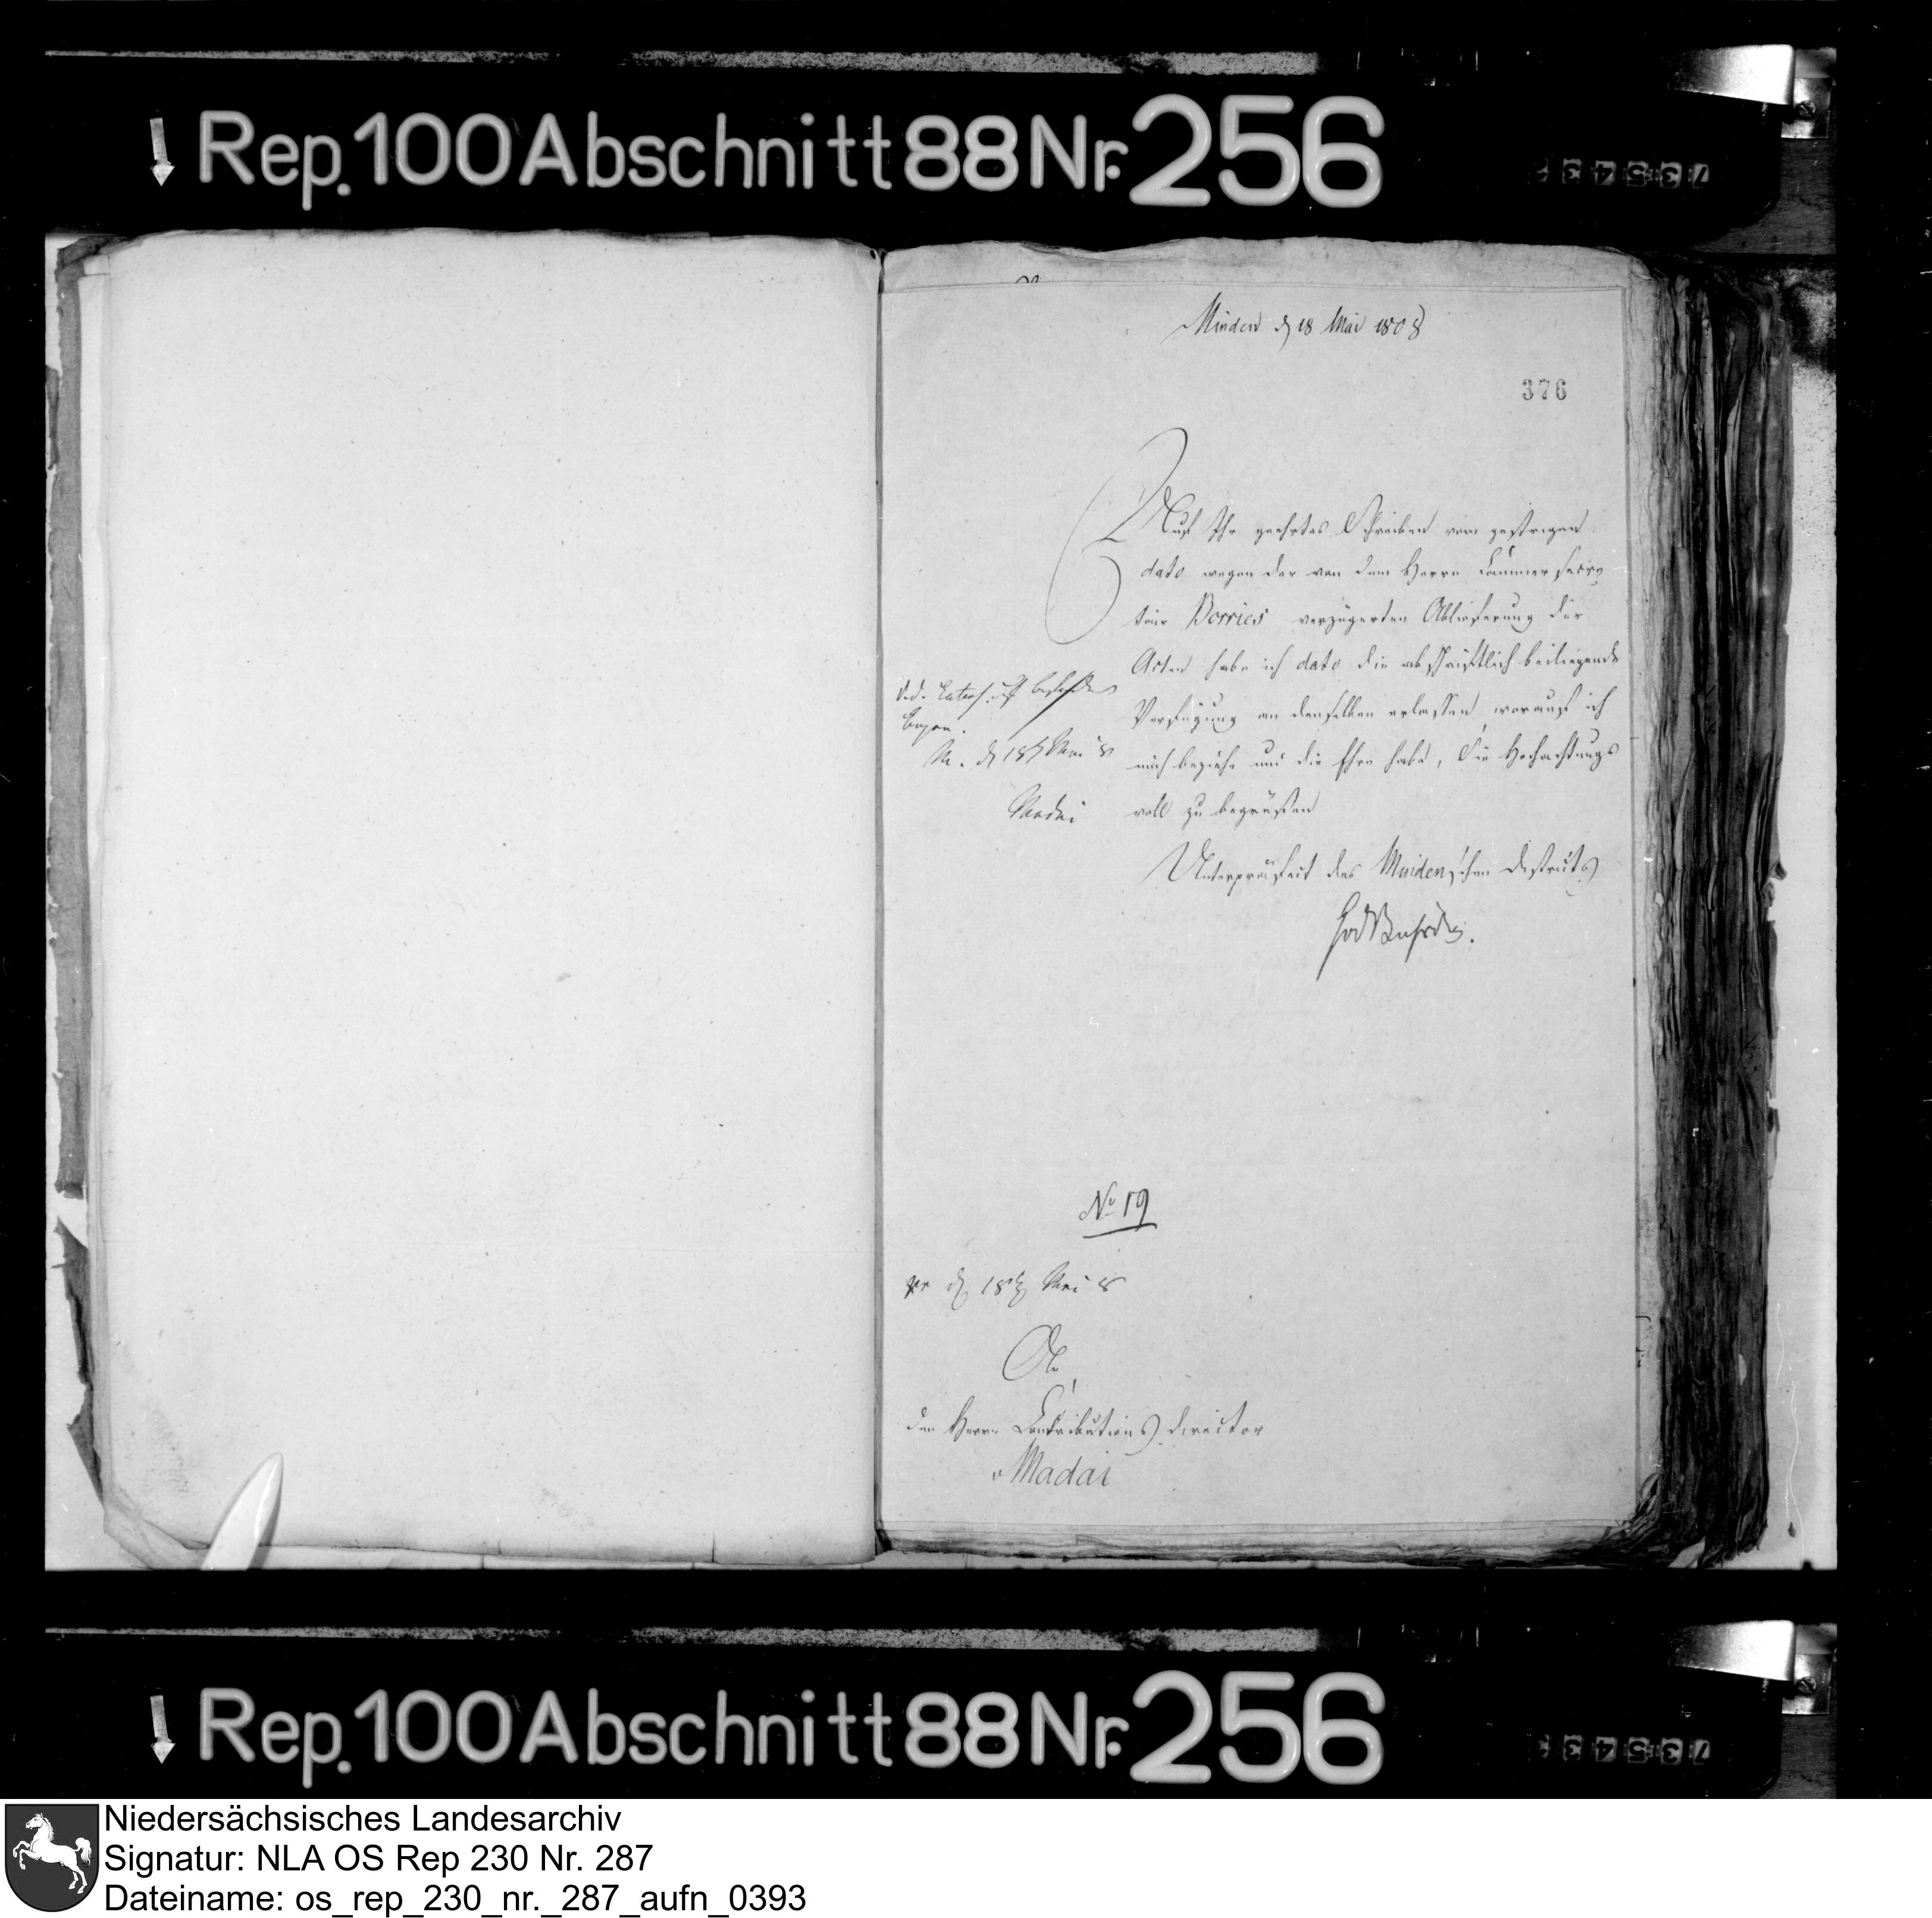 Rep. 100 Abschnitt 88 Nr. 256
Minden d 18 Mai 1808
376
Auf Ihr geehrtes Schreiben vom gestrigen
dato wegen der von dem Herrn Cammer secre
tair Borries verzögerten Ablieferung der
Acten habe ich dato die abschriftlich beiliegende
Verfügung an denselben erlassen, worauf ich
mich beziehe und die Ehre habe, Sie Hochachtungs
voll zu begrüßen
Unterpräfect des Minden'schen Districts
M. d 18t Mai 8
Madai
No 19
pr d 18t Mai 8
An
den Herrn Contributions director
v Madai
Rep. 100 Abschnitt 88 Nr. 256
Niedersächsisches Landesarchiv
Signatur: NLA OS Rep 230 Nr. 287
Dateiname: os_rep_230_nr._287_aufn_0393